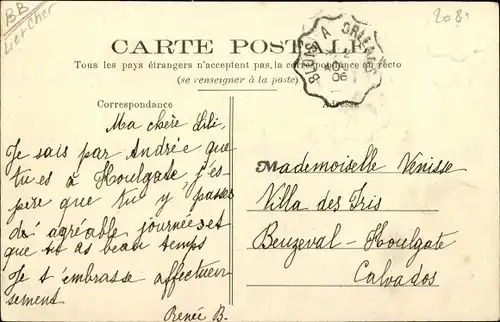 BB
Loir Cher
208
CARTE POSTALE
Tous les pays étrangers n'acceptent pas la correspondance au recto
(se renseigner à la poste)
BLOIS A ORLEANS
06
Correspondance
Adresse
Ma chère Lili,
Je sais par Andrée que
tu es à Houlgate j'es-
père que tu y passes
de agréable journées et
que tu as beau temps
Je t'embrasse affectueu
sement
Renée B.
Mademoiselle Venisse
Villa des Iris
Beuzeval - Houlgate
Calvados